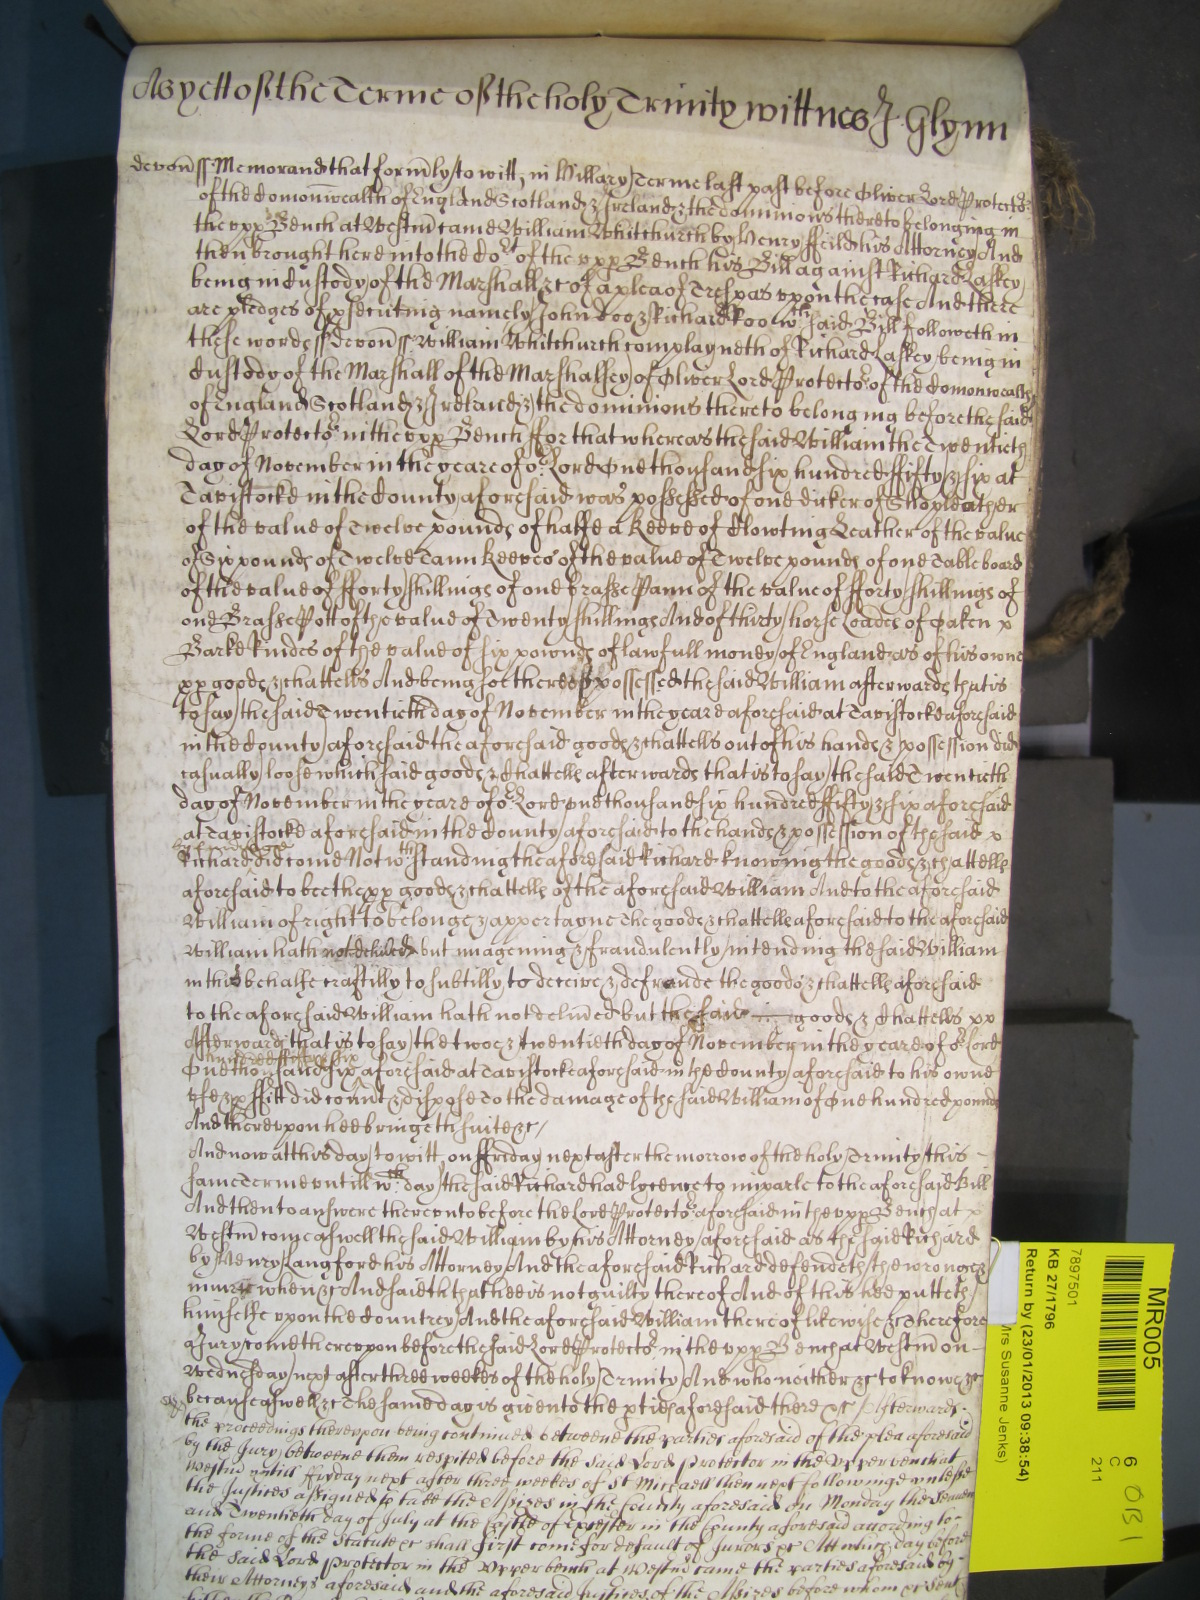 As yett of the Terme of the holy Trinity wittnes J. Glynn
Devon ss Memorand that form̄ly to witt, in Hillary Terme last past before Oliver Lord Protector
of the Comonwealth of England Scotland & Ireland & the dominions thereto belonging in
the vpp Bench at Westm̄ came William Whitchurch by Henry ffeild his Attorney And
then brought here into the Cort of the vpp Bench his Bill against Richard Laskey
being in Custody of the Marshall &c of a plea of Trespas vpon the case And there
are pledges of p̱secuting namely John Doo & Richard Roo wch said Bill followeth in
these words ss Devon ss William Whitchurch complayneth of Richard Laskey being in
Custody of the Marshall of the Marshalsey of Oliver Lord Protector of the Comonwealth
of England Scotland & Ireland & the dominions thereto belonging before the said
Lord Protector in the vpp Bench ffor that whereas the said William the Twentieth
day of November in the yeare of or Lord One thousand six hundred ffifty & six at
Tavistocke in the County aforesaid was possessed of one dicker of Shopleather
of the value of Twelve pounds of halfe a Keeve of Clowting Leather of the value
of Six pounds of Twelve Tann Keeves of the value of Twelve pounds of one Table board
of the value of fforty shillings of one brasse Pann of the value of fforty shillings of
one Brasse Pott of the value of Twenty shillings And of thirty horse Loades of Oaken
Barke Rindes of the value of six pounds of lawfull money of England as of his owne
p̱p goods & chattells And being soe thereof possessed the said William afterwards that is
to say the said Twentieth day of November in the yeare aforesaid at Tavistocke aforesaid
in the County aforesaid the aforesaid goods & chattells out of his hands & possession did
casually loose which said goods & Chattells afterwards that is to say the said Twentieth
day of November in the yeare of or Lord One thousand six hundred ffifty & six aforesaid
at Tavistocke aforesaid in the County aforesaid to the hands & possession of the said
Richard did come Notwthstanding the aforesaid Richard knowing the goods & chattells
aforesaid to bee the p̱p goods & chattells of the aforesaid William And to the aforesaid
William of right to belonge & appertayne The goods & chattells aforesaid to the aforesaid
William hath not delived but imagening & fraudulently intending the said William
in this behalfe craftilly & subtilly to deceive & defraude the goods & chattells aforesaid
to the aforesaid William hath not delived but the said goods & Chattells
Afterwards that is to say the two & twentieth day of November in the yeare of or Lord
hundred ffifty & six
One thousand six aforesaid at Tavistocke aforesaid in the County aforesaid to his owne
vse & p̱ffitt did convt & dispose To the damage of the said William of One hundred pounds
And therevpon hee bringeth suite &c
And now att this day to witt, on ffriday next after the morrow of the holy Trinity this
same Terme vntill wch day the said Richard had lycence to imparle to the aforesaid Bill
And then to answere therevnto before the Lord Protector aforesaid in the vpp Bench at
Westm̄ come aswell the said William by his Attorney aforesaid as the said Richard
by Henry Langford his Attorney And the aforesaid Richard defendeth the wrong &
iniurie when &c And saith that hee is not guilty thereof And of this hee putteth
himselfe vpon the Countrey And the aforesaid William thereof likewise &c Therefore
a Jury come therevpon before the said Lord Protector in the vpp Bench at Westm̄ on
Wednesday next after three weekes of the holy Trinity And who neither &c to know &c
because aswell &c The same day is given to the p̱ties aforesaid there &c Afterwards
the proceedings therevpon being continued betweene the parties aforesaid of the plea aforesaid
by the Jury betweene them respited before the said Lord Protector in the Vpper bench at
Westm̄ vntill ffryday next after three weekes of St Michaell then next followinge vnlesse
the Justices assigned to take the Assizes in the County aforesaid on Monday the Seaven
and Twentieth day of July at the Castle of Exester in the County aforesaid according to
the forme of the Statute &c shall first come for default of Jurors &c Att which day before
the said Lord Protector in the Vpper bench at Westm̄ came the parties aforesaid by
their Attorneys aforesaid and the aforesaid Justices of the Assizes before whom &c sent
MR005
7897501
KB 27/1796
Return by (23/01/2013 09:38:54)
Mrs Susanne Jenks)
6
C
211